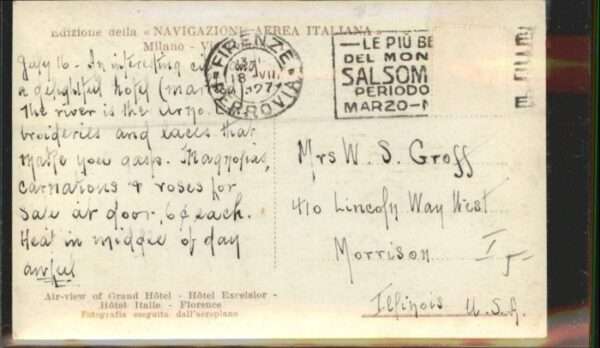 Edizione della «NAVIGAZIONE AEREA ITALIANA»
Milano - V
FIRENZE
FERROVIA
18 VII
—LE PIÙ BE
DEL MON
SALSOM
PERIODO
MARZO-N
July 16 - An interesting ci
a delightful hotel (mar
The river is the Arno.
broideries and laces that
make you gasp. Magnolias,
carnations & roses for
sale at door, 6¢ each.
Heat in middle of day
awful
Mrs W. S. Groff
410 Lincoln Way West
Morrison
Illinois U.S.A.
Air-view of Grand Hôtel - Hôtel Excelsior -
Hôtel Italie - Florence
Fotografia eseguita dall'aeroplano